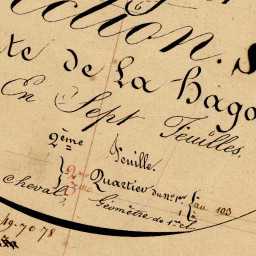 ction. S
te de La hago
En Sept Feuilles.
2ème Feuille.
2me Quartier du n° 1er au 103
3me
Cheval Géomètre de 1re cl.
49-70 78